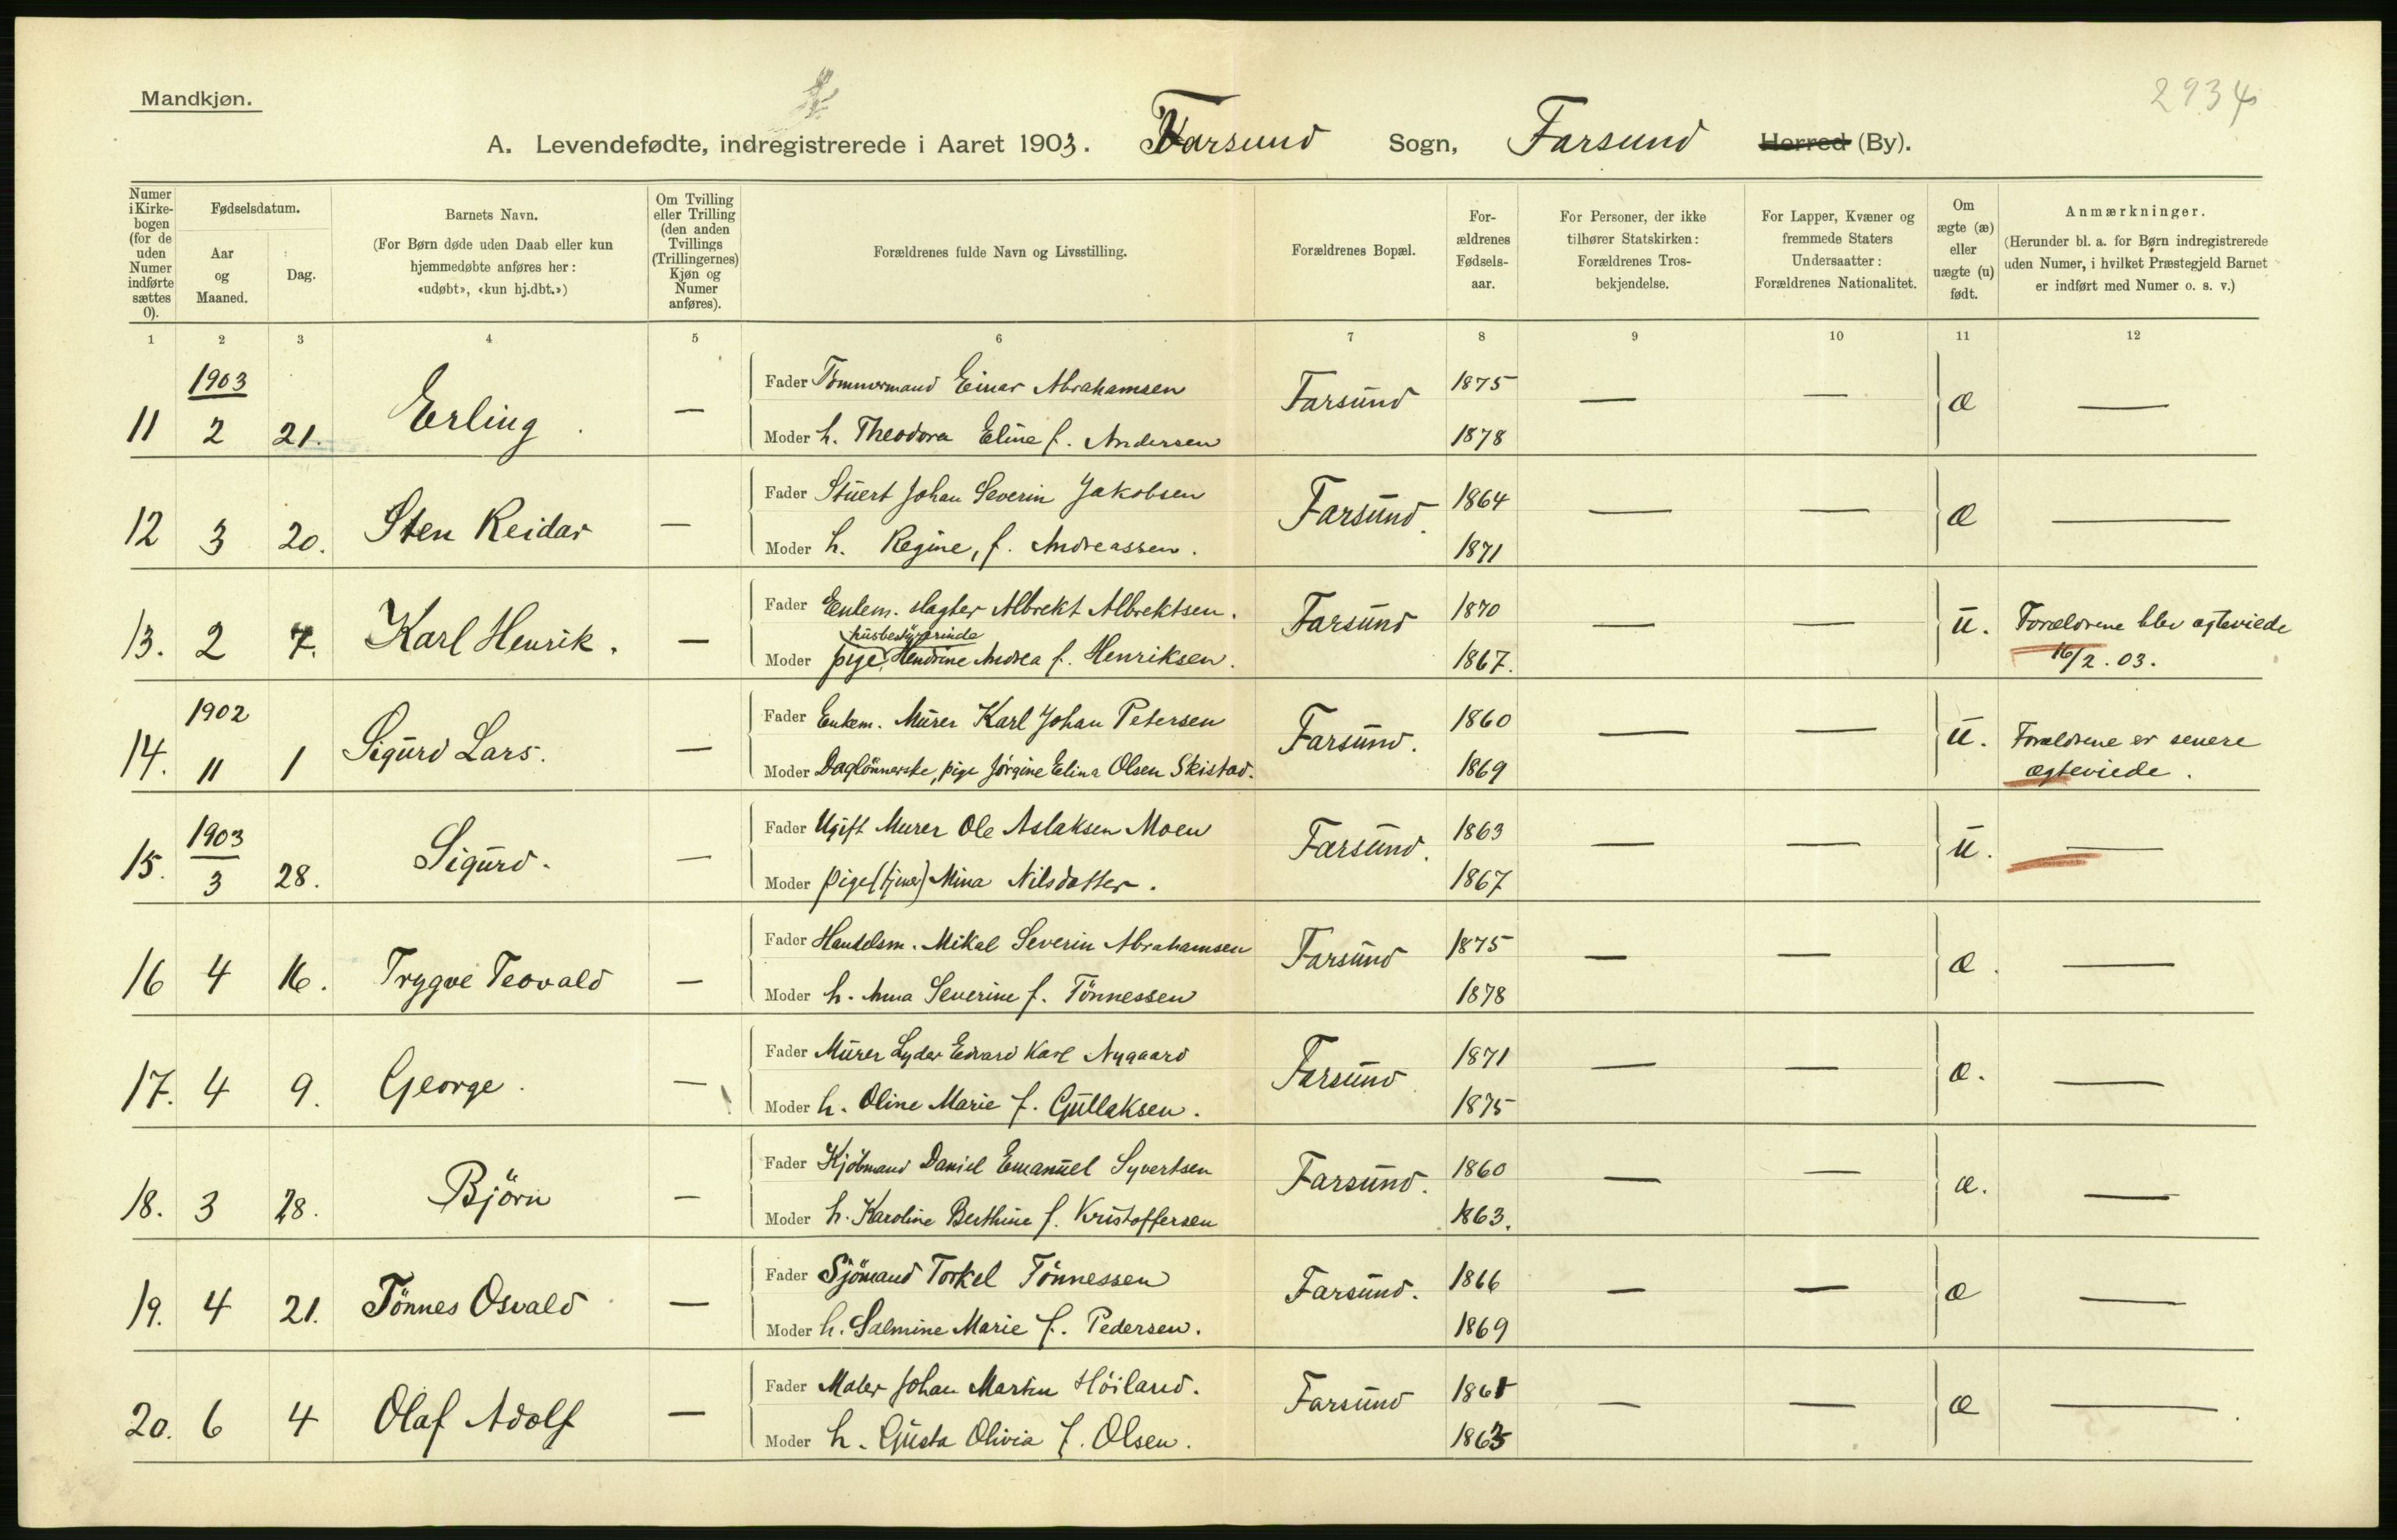 Mandkjøn.
2934
A. Levendefødte, indregistrerede i Aaret 1903. Farsund Sogn, Farsund Herred (By).
Numer i Kirkebogen (for de uden Numer indførte sættes 0).
Fødselsdatum.
Aar og Maaned.
Dag.
Barnets Navn.
(For Børn døde uden Daab eller kun hjemmedøbte anføres her: «udøbt», «kun hj.dbt.»)
Om Tvilling eller Trilling (den anden Tvillings (Trillingernes) Kjøn og Numer anføres).
Forældrenes fulde Navn og Livsstilling.
Forældrenes Bopæl.
For-ældrenes Fødsels-aar.
For Personer, der ikke tilhører Statskirken: Forældrenes Tros-bekjendelse.
For Lapper, Kvæner og fremmede Staters Undersaatter: Forældrenes Nationalitet.
Om ægte (æ) eller uægte (u) født.
Anmærkninger.
(Herunder bl. a. for Børn indregistrerede uden Numer, i hvilket Præstegjeld Barnet er indført med Numer o. s. v.)
1 2 3 4 5 6 7 8 9 10 11 12
1903
Fader Tömmermand Einar Abrahamsen 1875
11 2 21. Erling. — Farsund — — æ —
Moder h. Theodora Eline f. Andersen 1878
Fader Stuert Johan Severin Jakobsen 1864
12 3 20. Sten Reidar — Farsund. — — æ —
Moder h. Regine, f. Andreassen. 1871
Fader Enkem. slagter Albrekt Albrektsen. 1870
husbestyrerinde
13. 2 7. Karl Henrik. — Farsund — — u. Forældrene blev ægteviede
Moder pige, Hendrine Andrea f. Henriksen. 1867. 16/2. 03.
1902
Fader Enkem. Murer Karl Johan Petersen 1860
14. 11 1 Sigurd Lars. — Farsund. — — u. Forældrene er senere
Moder Daglönnerske, pige Jörgine Elina Olsen Skistad. 1869 ægteviede.
1903
Fader Ugift Murer Ole Aslaksen Moen 1863
15. 3 28. Sigurd. — Farsund. — — u. —
Moder pige (tjener) Mina Nilsdatter. 1867
Fader Handelsm. Mikal Severin Abrahamsen 1875
16 4 16. Trygve Teovald — Farsund — — æ. —
Moder h. Anna Severine f. Tönnessen 1878
Fader Murer Lyder Edvard Karl Nygaard 1871
17. 4 9. George. — Farsund — — æ. —
Moder h. Oline Marie f. Gullaksen. 1875
Fader Kjöbmand Daniel Emanuel Syvertsen 1860
18. 3 28. Björn — Farsund. — — æ. —
Moder h. Karoline Berthine f. Kristoffersen 1863.
Fader Sjömand Torkel Tönnessen 1866
19. 4 21. Tönnes Osvald — Farsund. — — æ —
Moder h. Salmine Marie f. Pedersen. 1869
Fader Maler Johan Martin Höiland. 1861
20. 6 4 Olaf Adolf — Farsund — — æ —
Moder h. Gusta Olivia f. Olsen. 1863